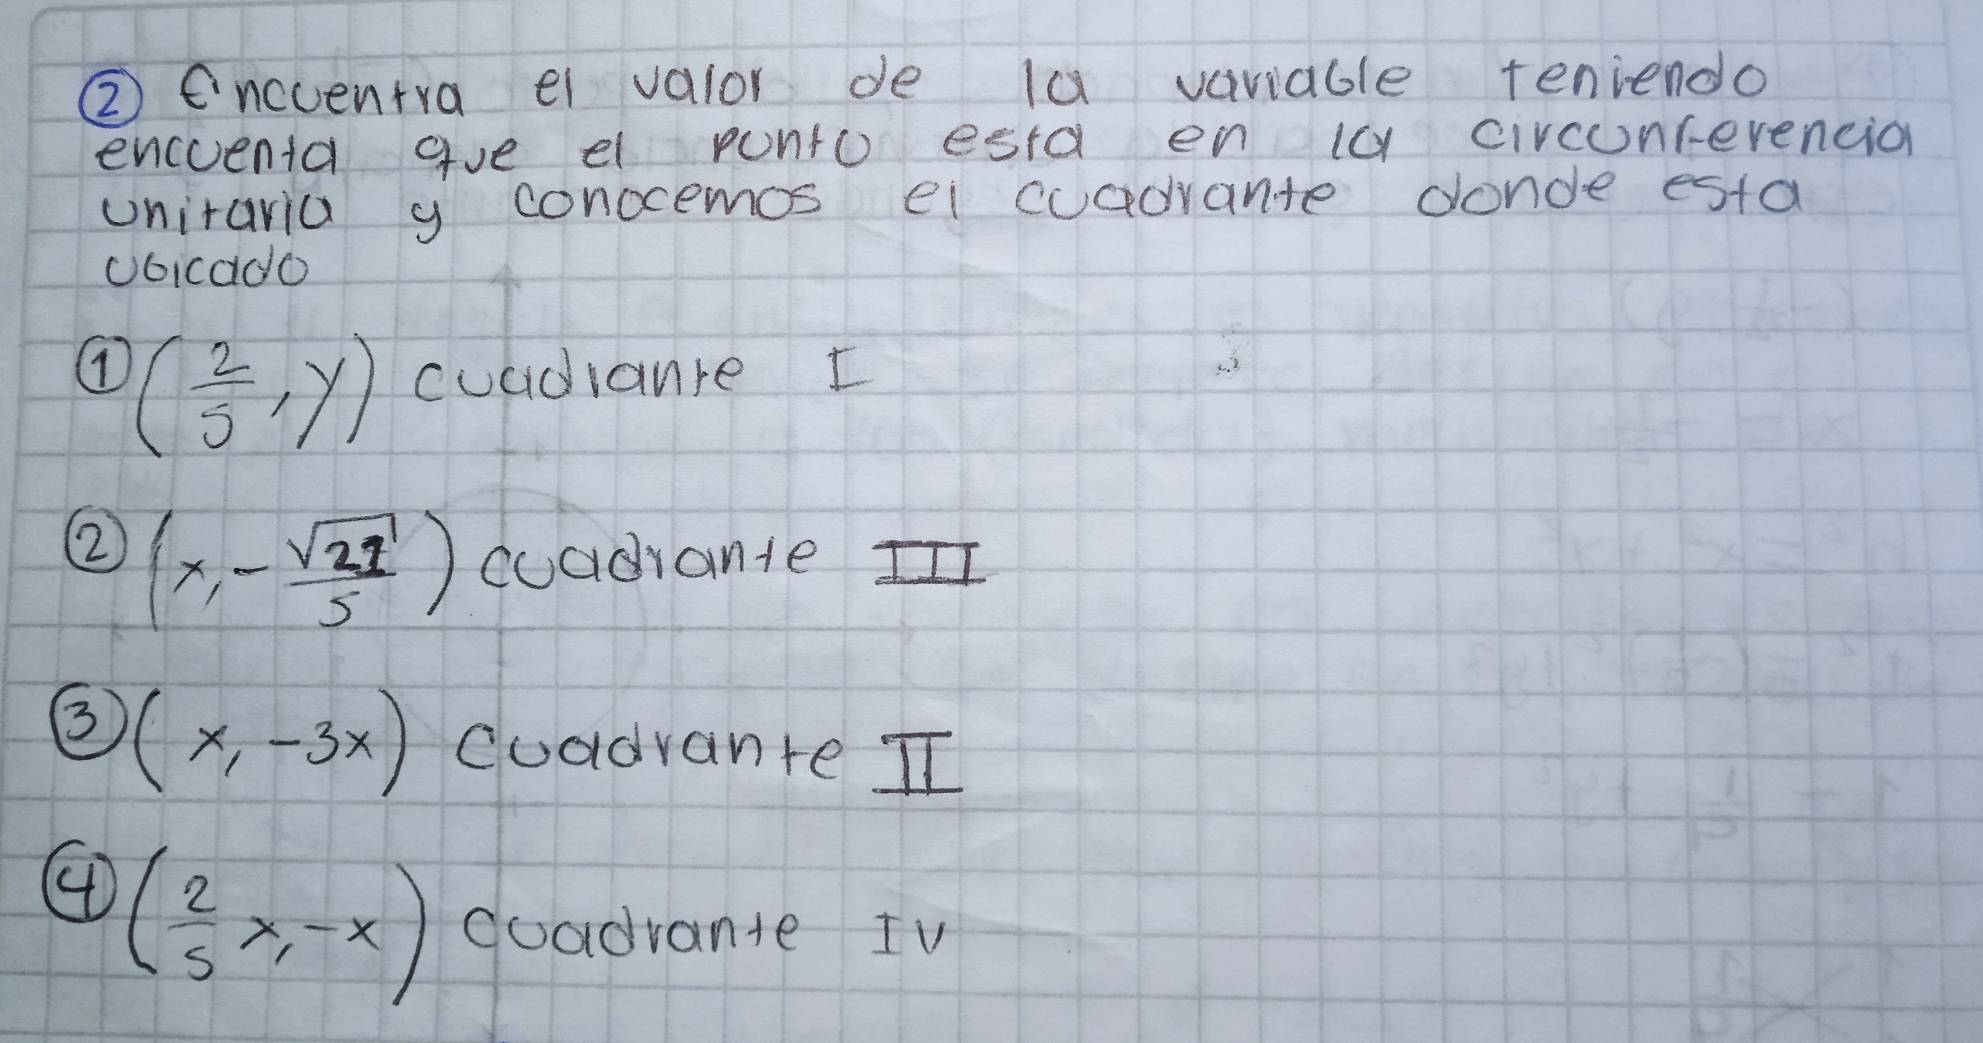 ② Encuentra el valor de la variable teniendo
encuenta que el punto esta en la circunferencia
unitaria y conocemos el cuadrante donde esta
ubicado
① (2/5, y) cuadrante I
② (x, -√21/5) cuadrante III
③ (x, -3x) cuadrante II
④ (2/5 x, -x) cuadrante IV